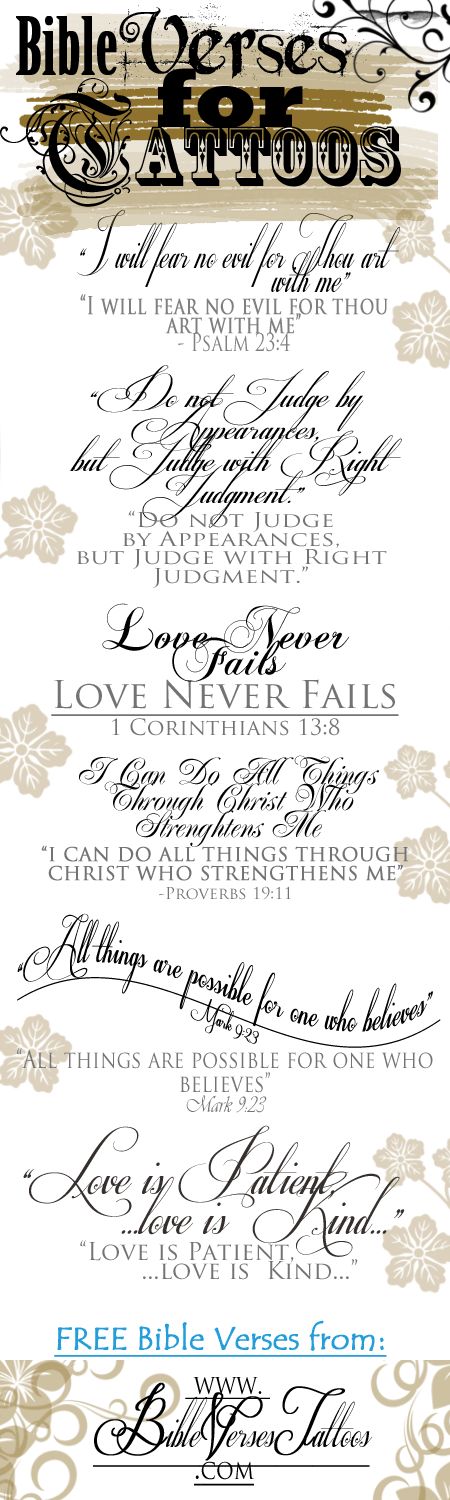 Bible Verses
for
Tattoos
“I will fear no evil for Thou art
with me”
“I will fear no evil for thou
art with me”
- Psalm 23:4
“Do not Judge by
Appearances,
but Judge with Right
Judgment.”
“Do not Judge
by Appearances,
but Judge with Right
Judgment.”
Love Never
Fails
Love Never Fails
1 Corinthians 13:8
I Can Do All Things
Through Christ Who
Strenghtens Me
“I can do all things through
Christ who strengthens me”
-Proverbs 19:11
“All things are possible for one who believes”
Mark 9-23
“All things are possible for one who
believes”
Mark 9:23
“Love is Patient,
...love is Kind...”
“Love is Patient,
...love is Kind...”
FREE Bible Verses from:
www.
BibleVersesTattoos
.com